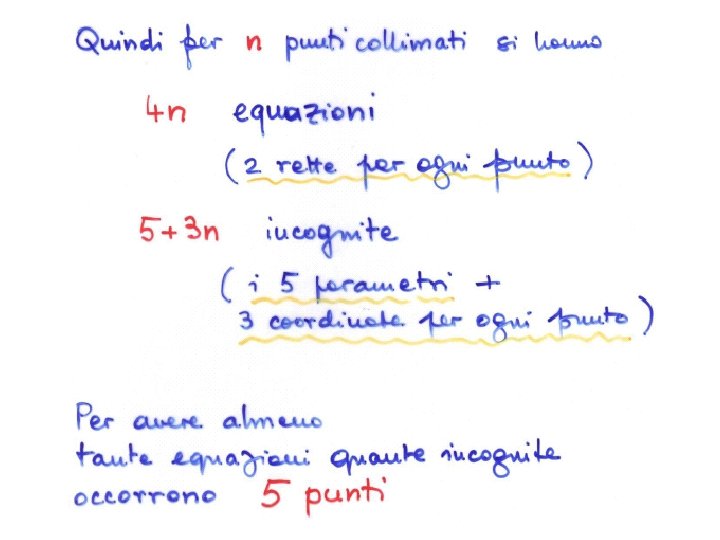 Quindi per n punti collimati si hanno
4n equazioni
(2 rette per ogni punto)
5+3n incognite
(i 5 parametri +
3 coordinate per ogni punto)
Per avere almeno
tante equazioni quante incognite
occorrono 5 punti